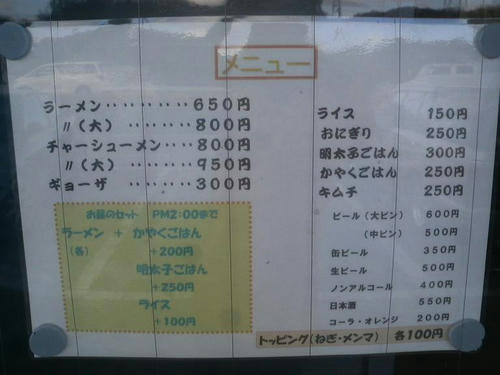 メニュー
ラーメン ・・・・・・・・・・ 650円
〃(大) ・・・・・・・・ 800円
チャーシューメン ・・・・ 800円
〃(大) ・・・・・・・・ 950円
ギョーザ ・・・・・・・・ 300円
お昼のセット PM2:00まで
ラーメン + かやくごはん
(各) +200円
明太子ごはん
+250円
ライス
+100円
ライス 150円
おにぎり 250円
明太子ごはん 300円
かやくごはん 250円
キムチ 250円
ビール(大ビン) 600円
(中ビン) 500円
缶ビール 350円
生ビール 500円
ノンアルコール 400円
日本酒 550円
コーラ・オレンジ 200円
トッピング(ねぎ・メンマ) 各100円